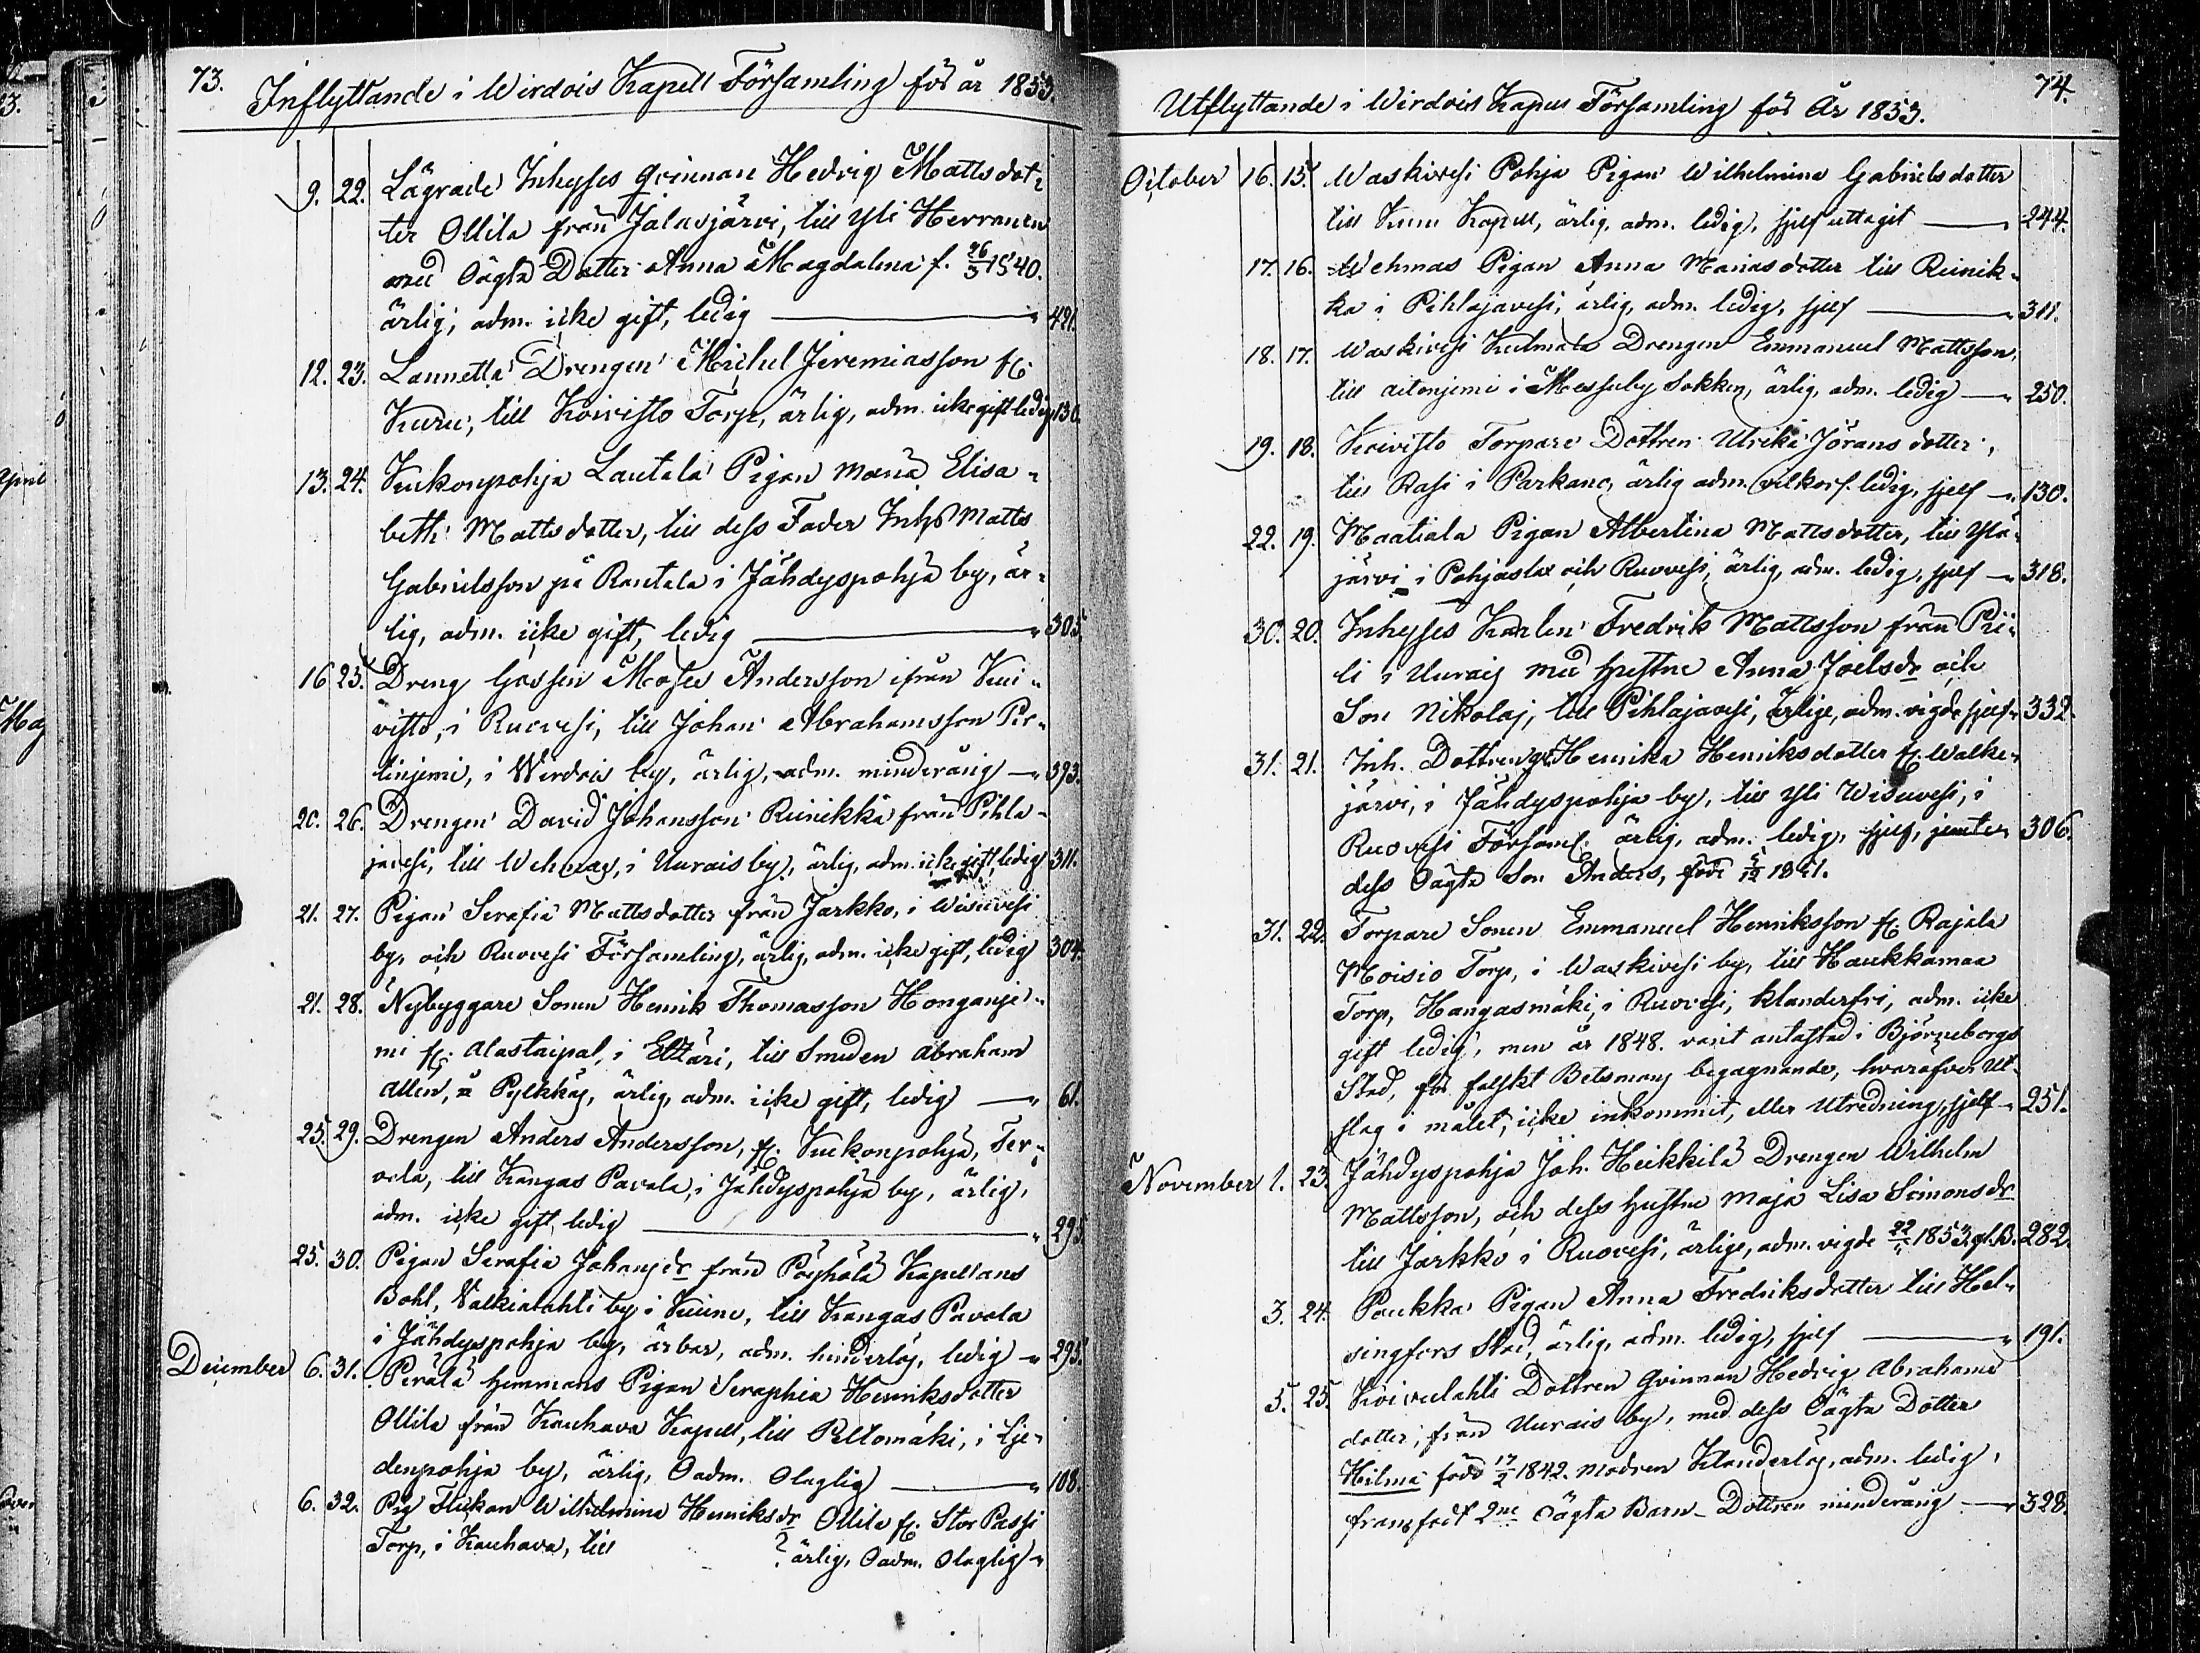 73.
Inflyttande i Wirdois Kapell Församling för år 1853.
9. 22. Lägrade Inhyses qvinnan Hedvig Mattsdot-
ter Ollila från Jalasjärvi, till Yli Herranen
med Oägta Dotter Anna Magdalena f. 26/3 1840.
ärlig, adm. icke gift, ledig — " 421.
12. 23. Lannetta Drengen Michel Jeremiasson fr.
Kuru, till Koivisto Torp, ärlig, adm. icke gift ledig 130.
13. 24. Kukonpohja Lautala Pigan Maria Elisa-
beth Mattsdotter, till dess Fader Inhs Matts
Gabrielsson på Rantala i Jähdyspohja by, är-
lig, adm. icke gift, ledig — " 305.
16 25. Dreng Gossen Moses Andersson ifrån Kui-
visto, i Ruovesi, till Johan Abrahamsson
i Wirdois by, ärlig, adm. minderårig — " 393.
20. 26. Drengen David Johansson Reinikka från Pihla-
javesi, till Wehmas, i Uurais by, ärlig, adm. icke gift, ledig 311.
21. 27. Pigan Serafia Mattsdotter från Jarkko, i Wisuvesi
by, och Ruovesi Församling, ärlig, adm. icke gift, ledig 304.
21. 28. Nybyggare Sonen Henrik Thomasson Honganje-
mi fr. Alastaipal, i Etzäri, till Smeden Abraham
Allen, å Pylkkäs, ärlig, adm. icke gift, ledig — " 61.
25. 29. Drengen Anders Andersson, fr. Kuckonpohja, Ter-
vola, till Kangas Pavola, i Jähdyspohja by, ärlig,
adm. icke gift, ledig — " 295.
25. 30. Pigan Serafia Johansdr från Pöyhölä Kapellans
Bohl, Valkialahti by i Keuru, till Kangas Pavola
i Jähdyspohja by, ärbar, adm. hinderlös, ledig — " 295.
December 6. 31. Perälä Hemmans Pigan Seraphia Henriksdotter
Ollila från Kauhava Kapell, till Peltomäki, i Lje-
denpohja by, ärlig, Oadm. Olaglig — " 108.
6. 32. Pig Flickan Wilhelmina Henriksdr Ollila fr. Stor Passi
Torp, i Kauhava, till ? ärlig, Oadm. Olaglig — "
74.
Utflyttande i Wirdois Kapell Församling för År 1853.
October 16. 15. Waskivesi Pohja Pigan Wilhelmina Gabrielsdotter
till Kuru Kapell, ärlig, adm. ledig, sjelf uttagit — 244.
17. 16. Wehmas Pigan Anna Mariasdotter till Reinik-
ka i Pihlajavesi, ärlig, adm. ledig, sjelf — " 311.
18. 17. Waskivesi Kulmala Drengen Emmanuel Mattsson,
till Aitonjemi i Messuby Sokken, ärlig, adm. ledig — " 250.
19. 18. Koivisto Torpare Dottren Ulrika Jöransdotter,
till Rasi i Parkano, ärlig adm. vilkorl. ledig, sjelf — " 130.
22. 19. Maatiala Pigan Albertina Mattsdotter, till Ylä-
järvi i Pohjaslax och Ruovesi, ärlig, adm. ledig, sjelf — " 318.
30. 20. Inhyses Karlen Fredrik Mattsson från Pii-
li i Uurais med hustru Anna Joelsdr och
Son Nikolaj, till Pihlajavesi, ärlige, adm. vigde sjelf " 332.
31. 21. Inh. Dottren Henrika Henriksdotter fr. Walke-
järvi, i Jähdyspohja by, till Yli Wisuvesi, i
Ruovesi Församl. ärlig, adm. ledig, sjelf, jemte 306.
dess Oägta Son Anders, född 5/12 1851.
31. 22. Torpare Sonen Emmanuel Henriksson fr. Rajala
Moisio Torp, i Waskivesi by, till Haukkamaa
Torp, Hangasmäki, i Ruovesi, klanderfri, adm. icke
gift ledig, men år 1848. varit antastad i Björneborgs
Stad, för falskt Betsmans begagnande, hvaröfver Ut-
slag i målet, icke inkommit, eller Utredning, sjelf " 251.
November 1. 23. Jähdyspohja Joh. Heikkilä Drengen Wilhelm
Mattsson, och dess hustru Maja Lisa Simonsdr
till Jarkko i Ruovesi, ärlige, adm. vigde 1853. 282.
3. 24. Paukka Pigan Anna Fredriksdotter till Hel-
singfors Stad, ärlig, adm. ledig, sjelf — " 191.
5. 25. Koivulahti Dottren Qvinnan Hedvig Abrahams
dotter, från Uurais by, med dess Oägta Dotter
Hilma född 17/2 1842. Modren Klanderlös, adm. ledig,
framfödt 2ne Oägta Barn – Dottren minderårig — " 328.